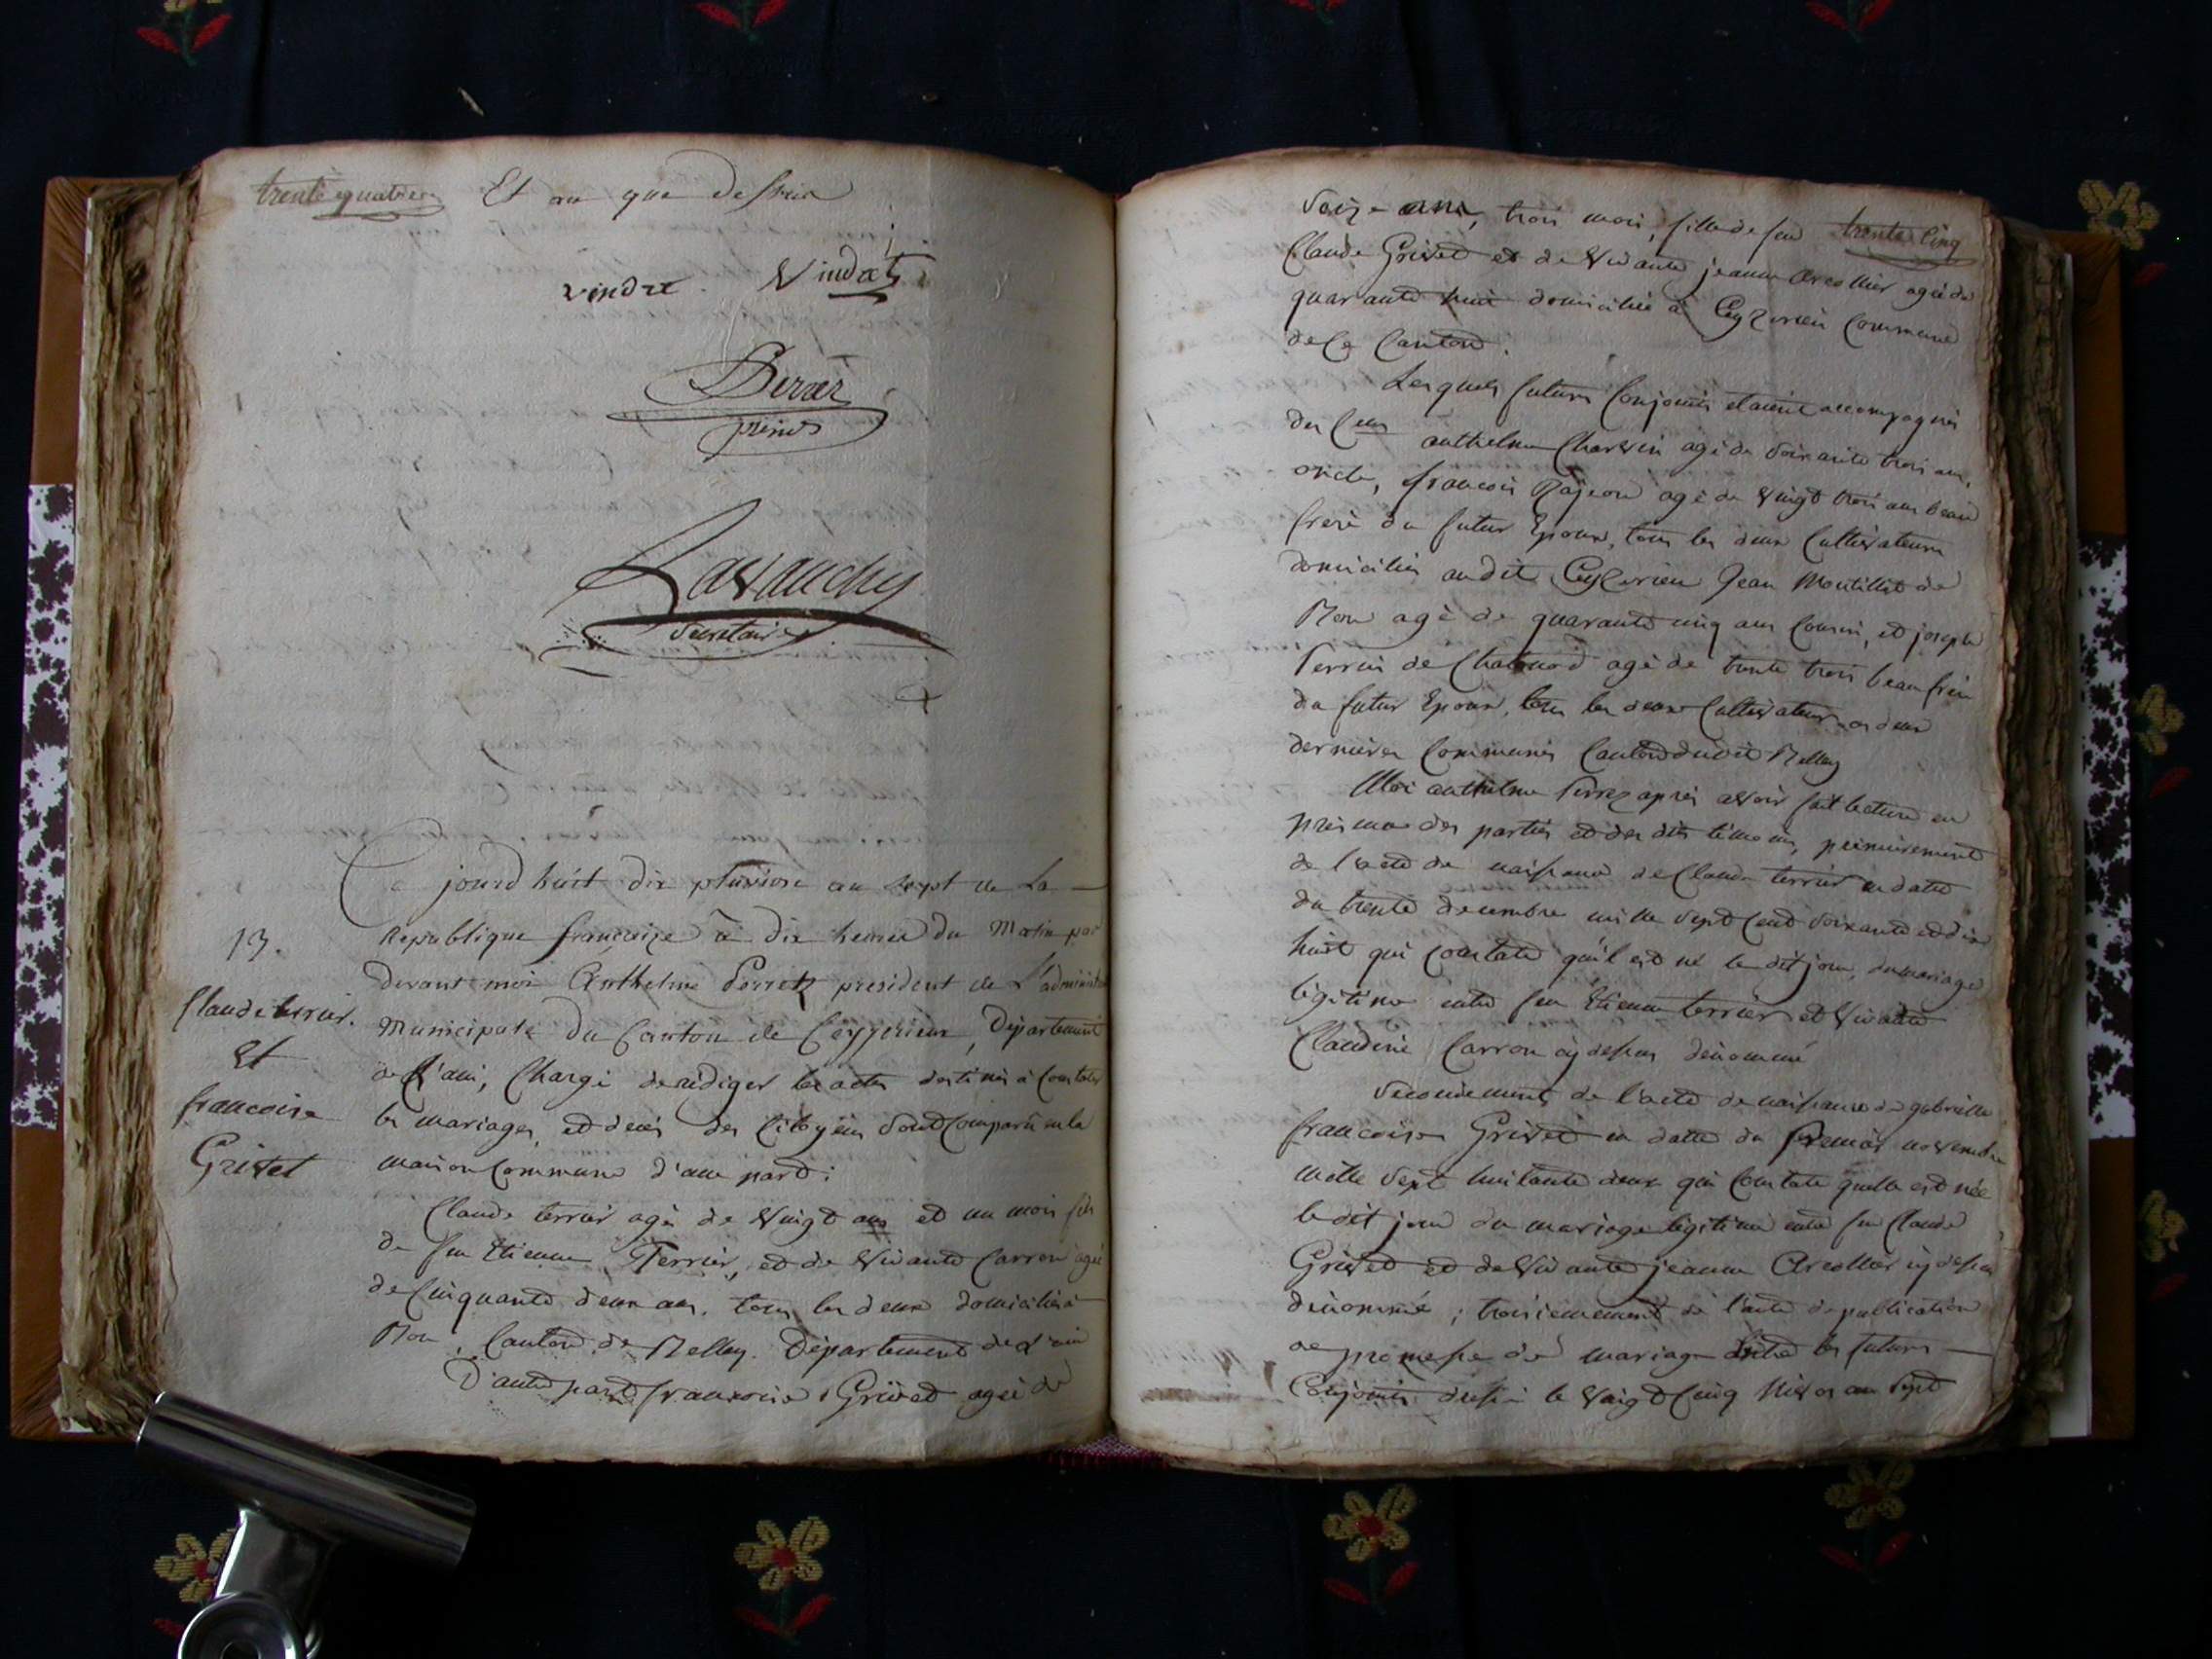 trente quatre
Et an que dessus
vindret Vindret
Perrez
présid
Lavauchy
Secretaire
Ce jourd huit dix pluviose an sept de La
Republique francaize à dix heures du Matin par
devant moi Anthelme Perretz president de L'administ
Municipale du Canton de Ceyzerieu, Département
de L'ain, Chargé de rediger les actes destinés à Constater
les mariages, et decés des Citoyens Sont Comparü en la
maison Commune d'une part:
13.
Claude terrier.
Et
francoise
Grivet
Claude terrier agé de Vingt ans et un mois fils
de feu Etienne Terrier, et de Vivante Carron agée
de Cinquante deux ans, tous les deux domiciliés à
Canton de Belley. Département de L'ain
D'autre part francoise Grivet agée de
trente Cinq
Seize ans, trois mois, fille de feu
Claude Grivet et de Vivante jeanne agée de
quarante huit domiciliée à Ceyzerieu Commune
de Ce Canton.
Lesquels futurs Conjoints etaient accompagnés
des Cens anthelme Charvin agé de Soixante trois ans,
oncle, francois agé de Vingt trois ans beau
frere du futur Epoux, tous les deux Cultivateurs
domiciliés audit Ceyzerieu Jean Montillet de
agé de quarante cinq ans Cousin, et joseph
Perrin de agé de trente trois beau frere
du futur Epoux, tous les deux Cultivateurs
dernieres Communes Canton dudit Belley
Moi anthelme Perrez après avoir fait lecture en
presence des parties et des dits témoins, premierement
de l'acte de naissance de Claude terrier en date
du trente decembre mille Sept Cent Soixante et dix
huit qui Constate qu'il est né le dit jour, du mariage
legitime entre feu Etienne terrier et Vivante
Claudine Carron cy dessus denommé
Secondement de l'acte de naissance de gabrielle
francoise Grivet en datte du Premier novembre
mille Sept huitante deux qui Constate quelle est née
le dit jour du mariage legitime entre feu Claude
Grivet et de Vivante jeanne cy dessus
dénommé; troisiemement de l'acte de publication
de promesse de mariage Entre les futurs
Conjoints dressé le Vingt Cinq Nivos an Sept